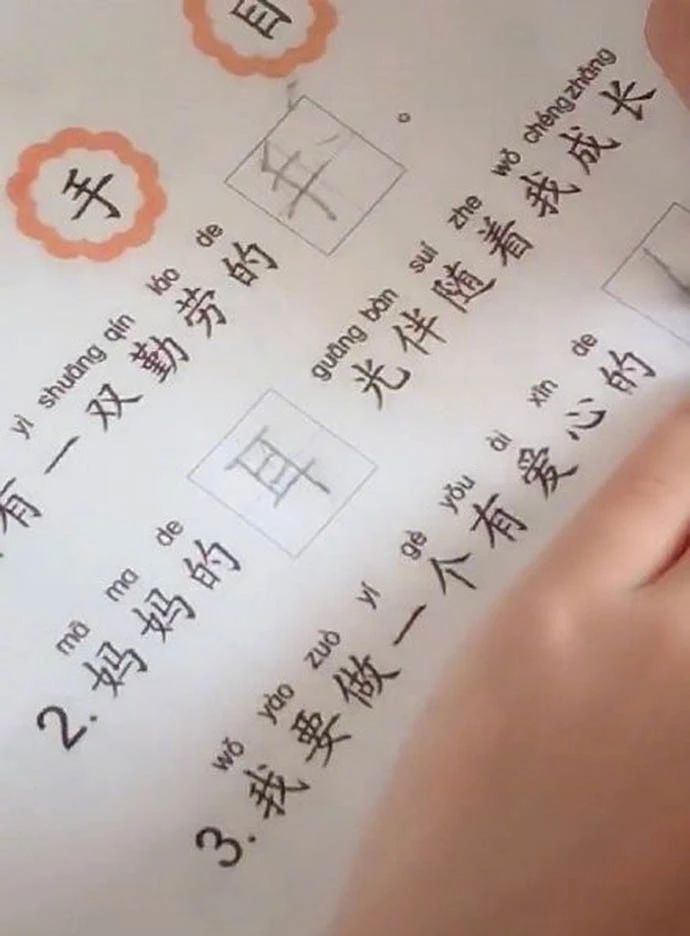 手
yì shuāng qín láo de
有一双勤劳的 。
mā ma de guāng bàn suí zhe wǒ chéng zhǎng
2. 妈妈的耳光伴随着我成长
wǒ yào zuò yí gè yǒu ài xīn de
3. 我要做一个有爱心的